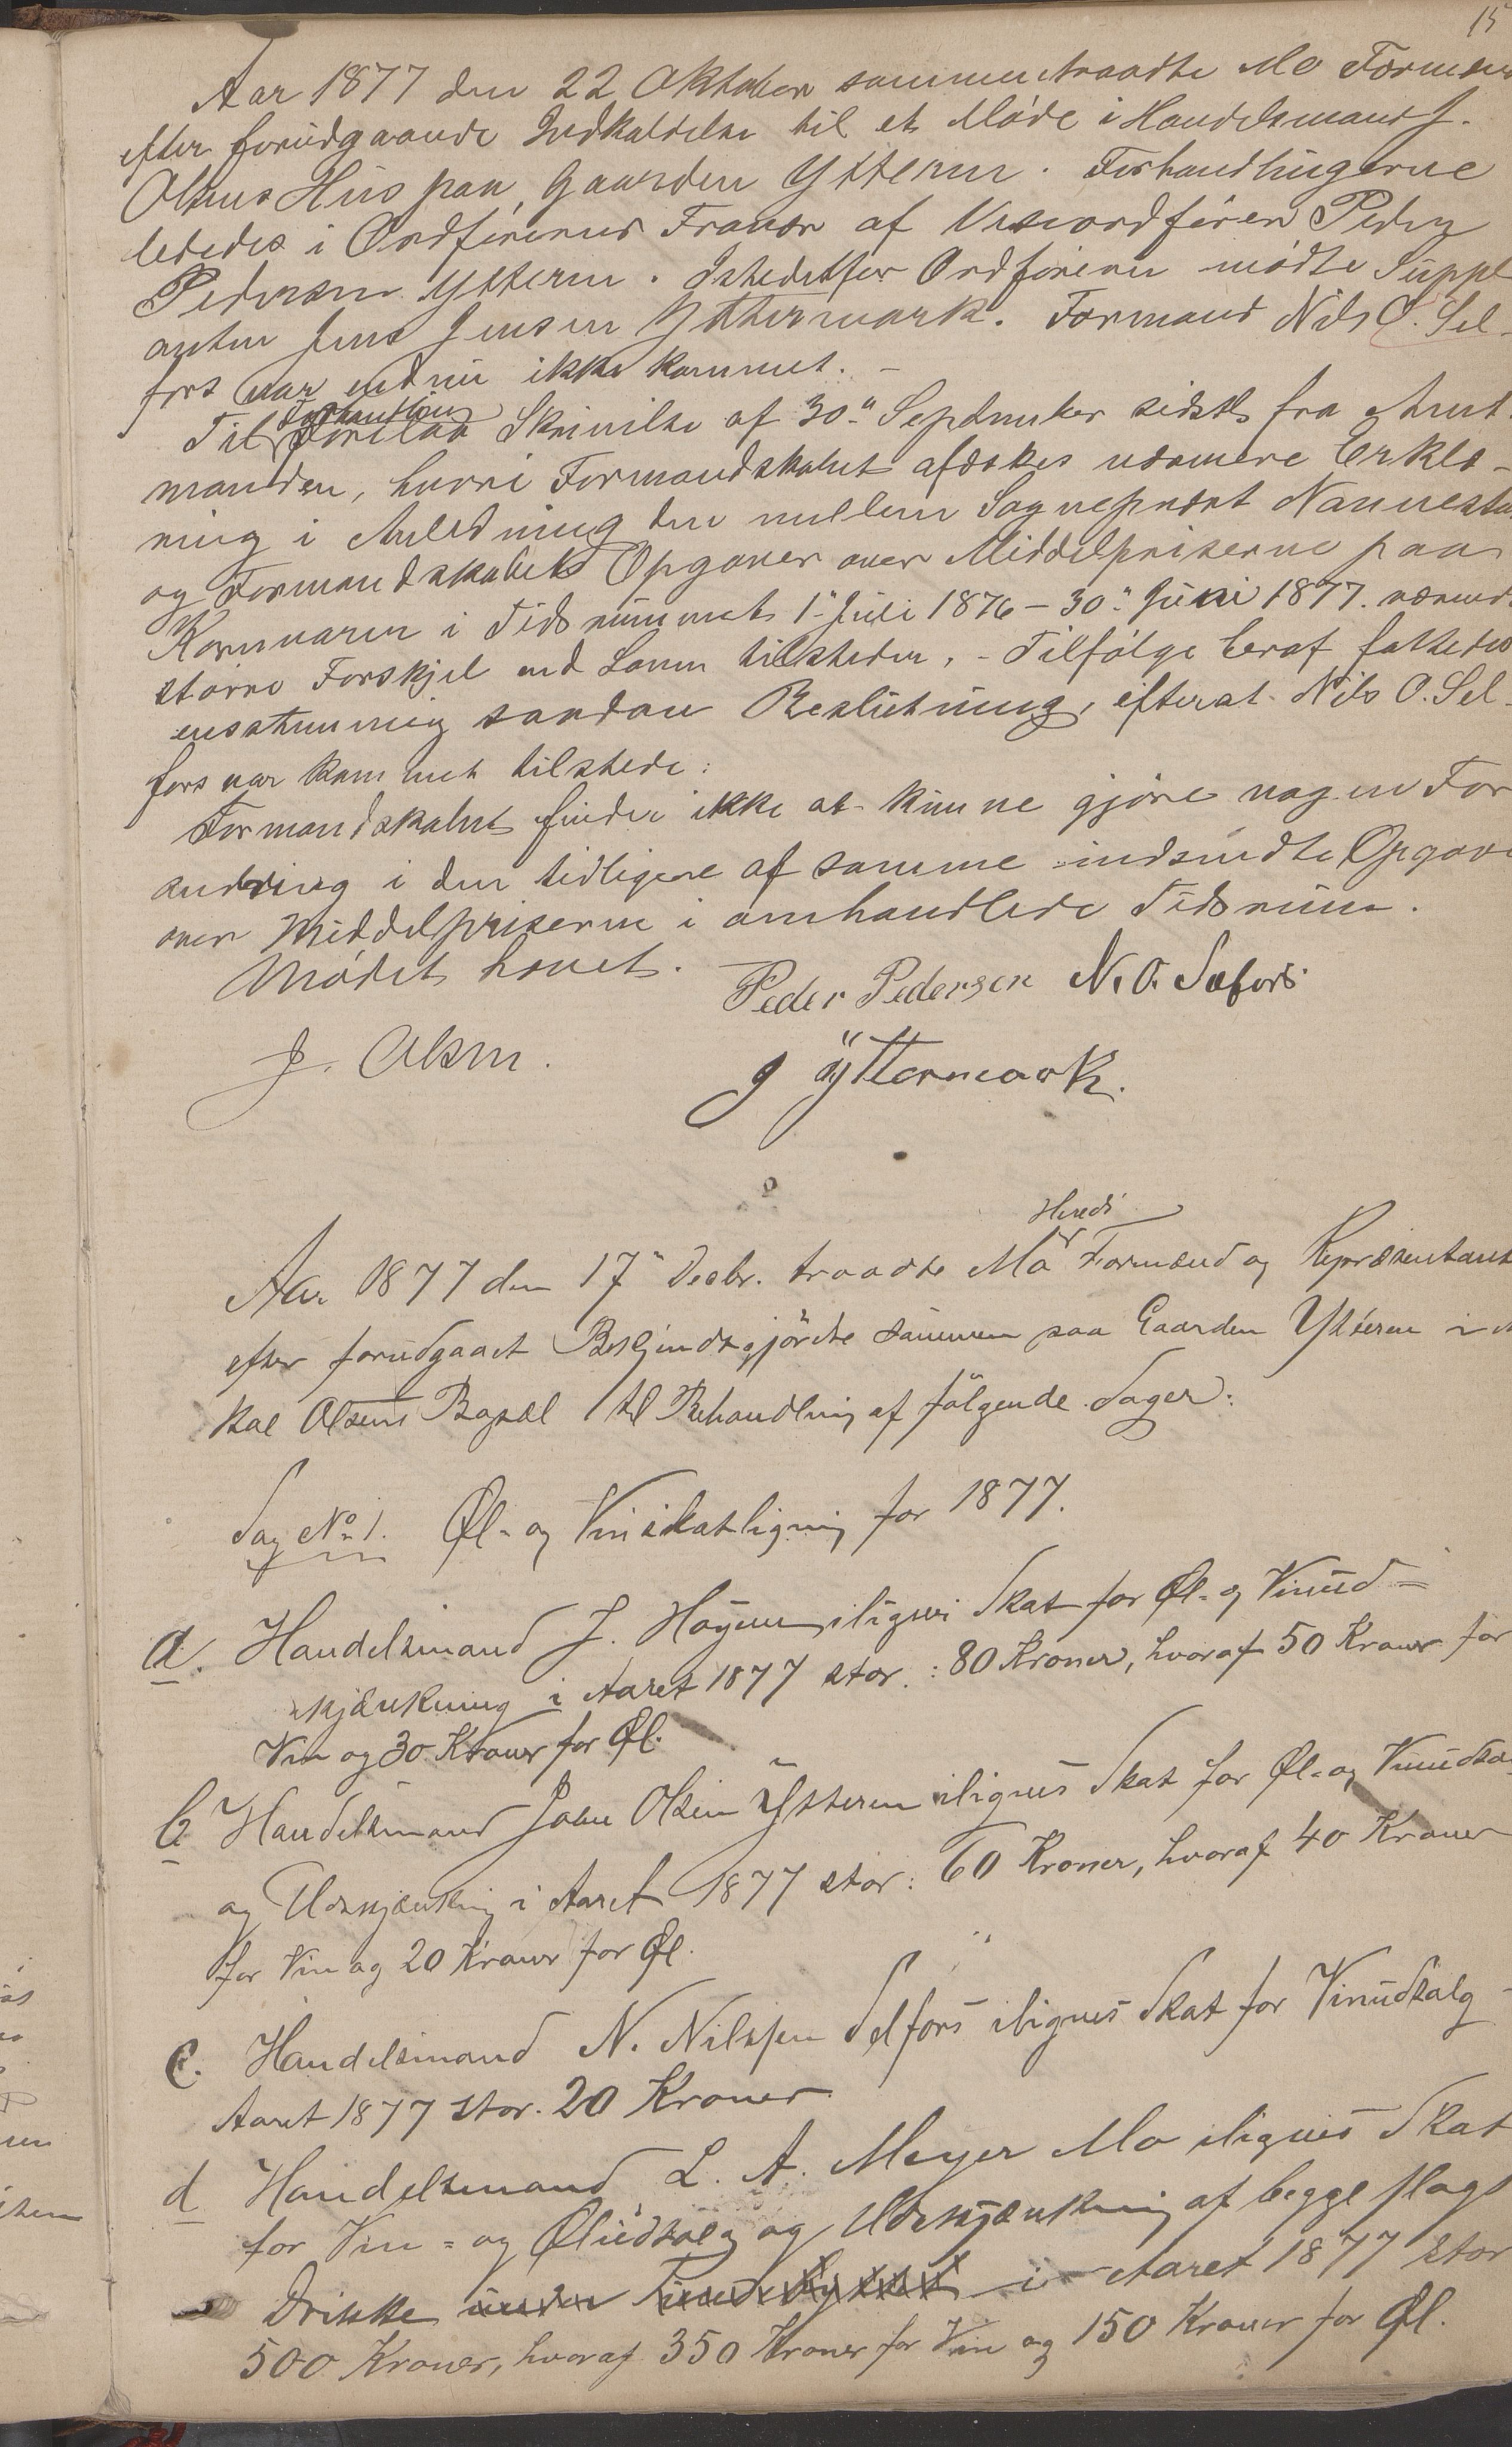 15
Aar 1877 den 22 Oktober sammentraadte Mo Formænd
efter forudgaaende Indkaldelse til et Møde i Handelsmand J.
Olsens Hus paa Gaarden Ytteren. Forhandlingerne
lededes i Ordførerens Fravær af Viseordfører Peder
Pedersen Ytteren. Istedetfor Ordføreren mødte Suppl
anten Jens Jensen Yttermark. Formand Nils O. Sel-
fors var endnu ikke kommet. -
Til Forhandling forelaa Skrivelse af 30" September sidstl fra Amt
manden, hvori Formandskabet afæskes nærmere Erklæ-
ring i Anledning den mellem Sognepræst Nannesta
og Formandskabets Opgaver over Middelpriserne paa
Kornvarer i Tidsrummet 1" Juli 1876 - 30" Juni 1877. værende
større Forskjel end Loven tilsteder. - Tilfølge heraf fattedes
enstemmig saadan Beslutning, efterat Nils O. Sel-
fors var kommet tilstede:
Formandskabet finder ikke at kunne gjøre nogen For
andring i den tidligere af samme indsendte Opgave
over Middelpriserne i omhandlede Tidsrum.
Mødet hævet.
Peder Pedersen N. O. Sefors
J. Olsen.
J Yttermark.
Hereds
Aar 1877 den 17" Decbr. traadte Mo Formænd og Repræsentant
efter forudgaaet Bekjendtgjørelse sammen paa Gaarden Ytteren i
kal Olsens Bopæl til Behandling af følgende Sager:
Sag No 1. Øl- og Vinskatligning for 1877.
a. Handelsmand J. Høyen ilignes Skat for Øl- og Vinud-
skjænkning i Aaret 1877 stor: 80 Kroner, hvoraf 50 Kroner for
Vin og 30 Kroner for Øl.
b Handelsmand John Olsen Ytteren ilignes Skat for Øl- og Vinudsa
og Udskjænkning i Aaret 1877 stor: 60 Kroner, hvoraf 40 Kroner
for Vin og 20 Kroner for Øl.
c. Handelsmand N. Nilssen Selfors ilignes Skat for Vinudsalg
Aaret 1877 stor. 20 Kroner.
d Handelsmand L. A. Meyer Mo ilignes Skat
for Vin- og Øludsalg og Udskjænkning af begge slags
Drikke i Aaret 1877 stor
500 Kroner, hvoraf 350 Kroner for Vin og 150 Kroner for Øl.